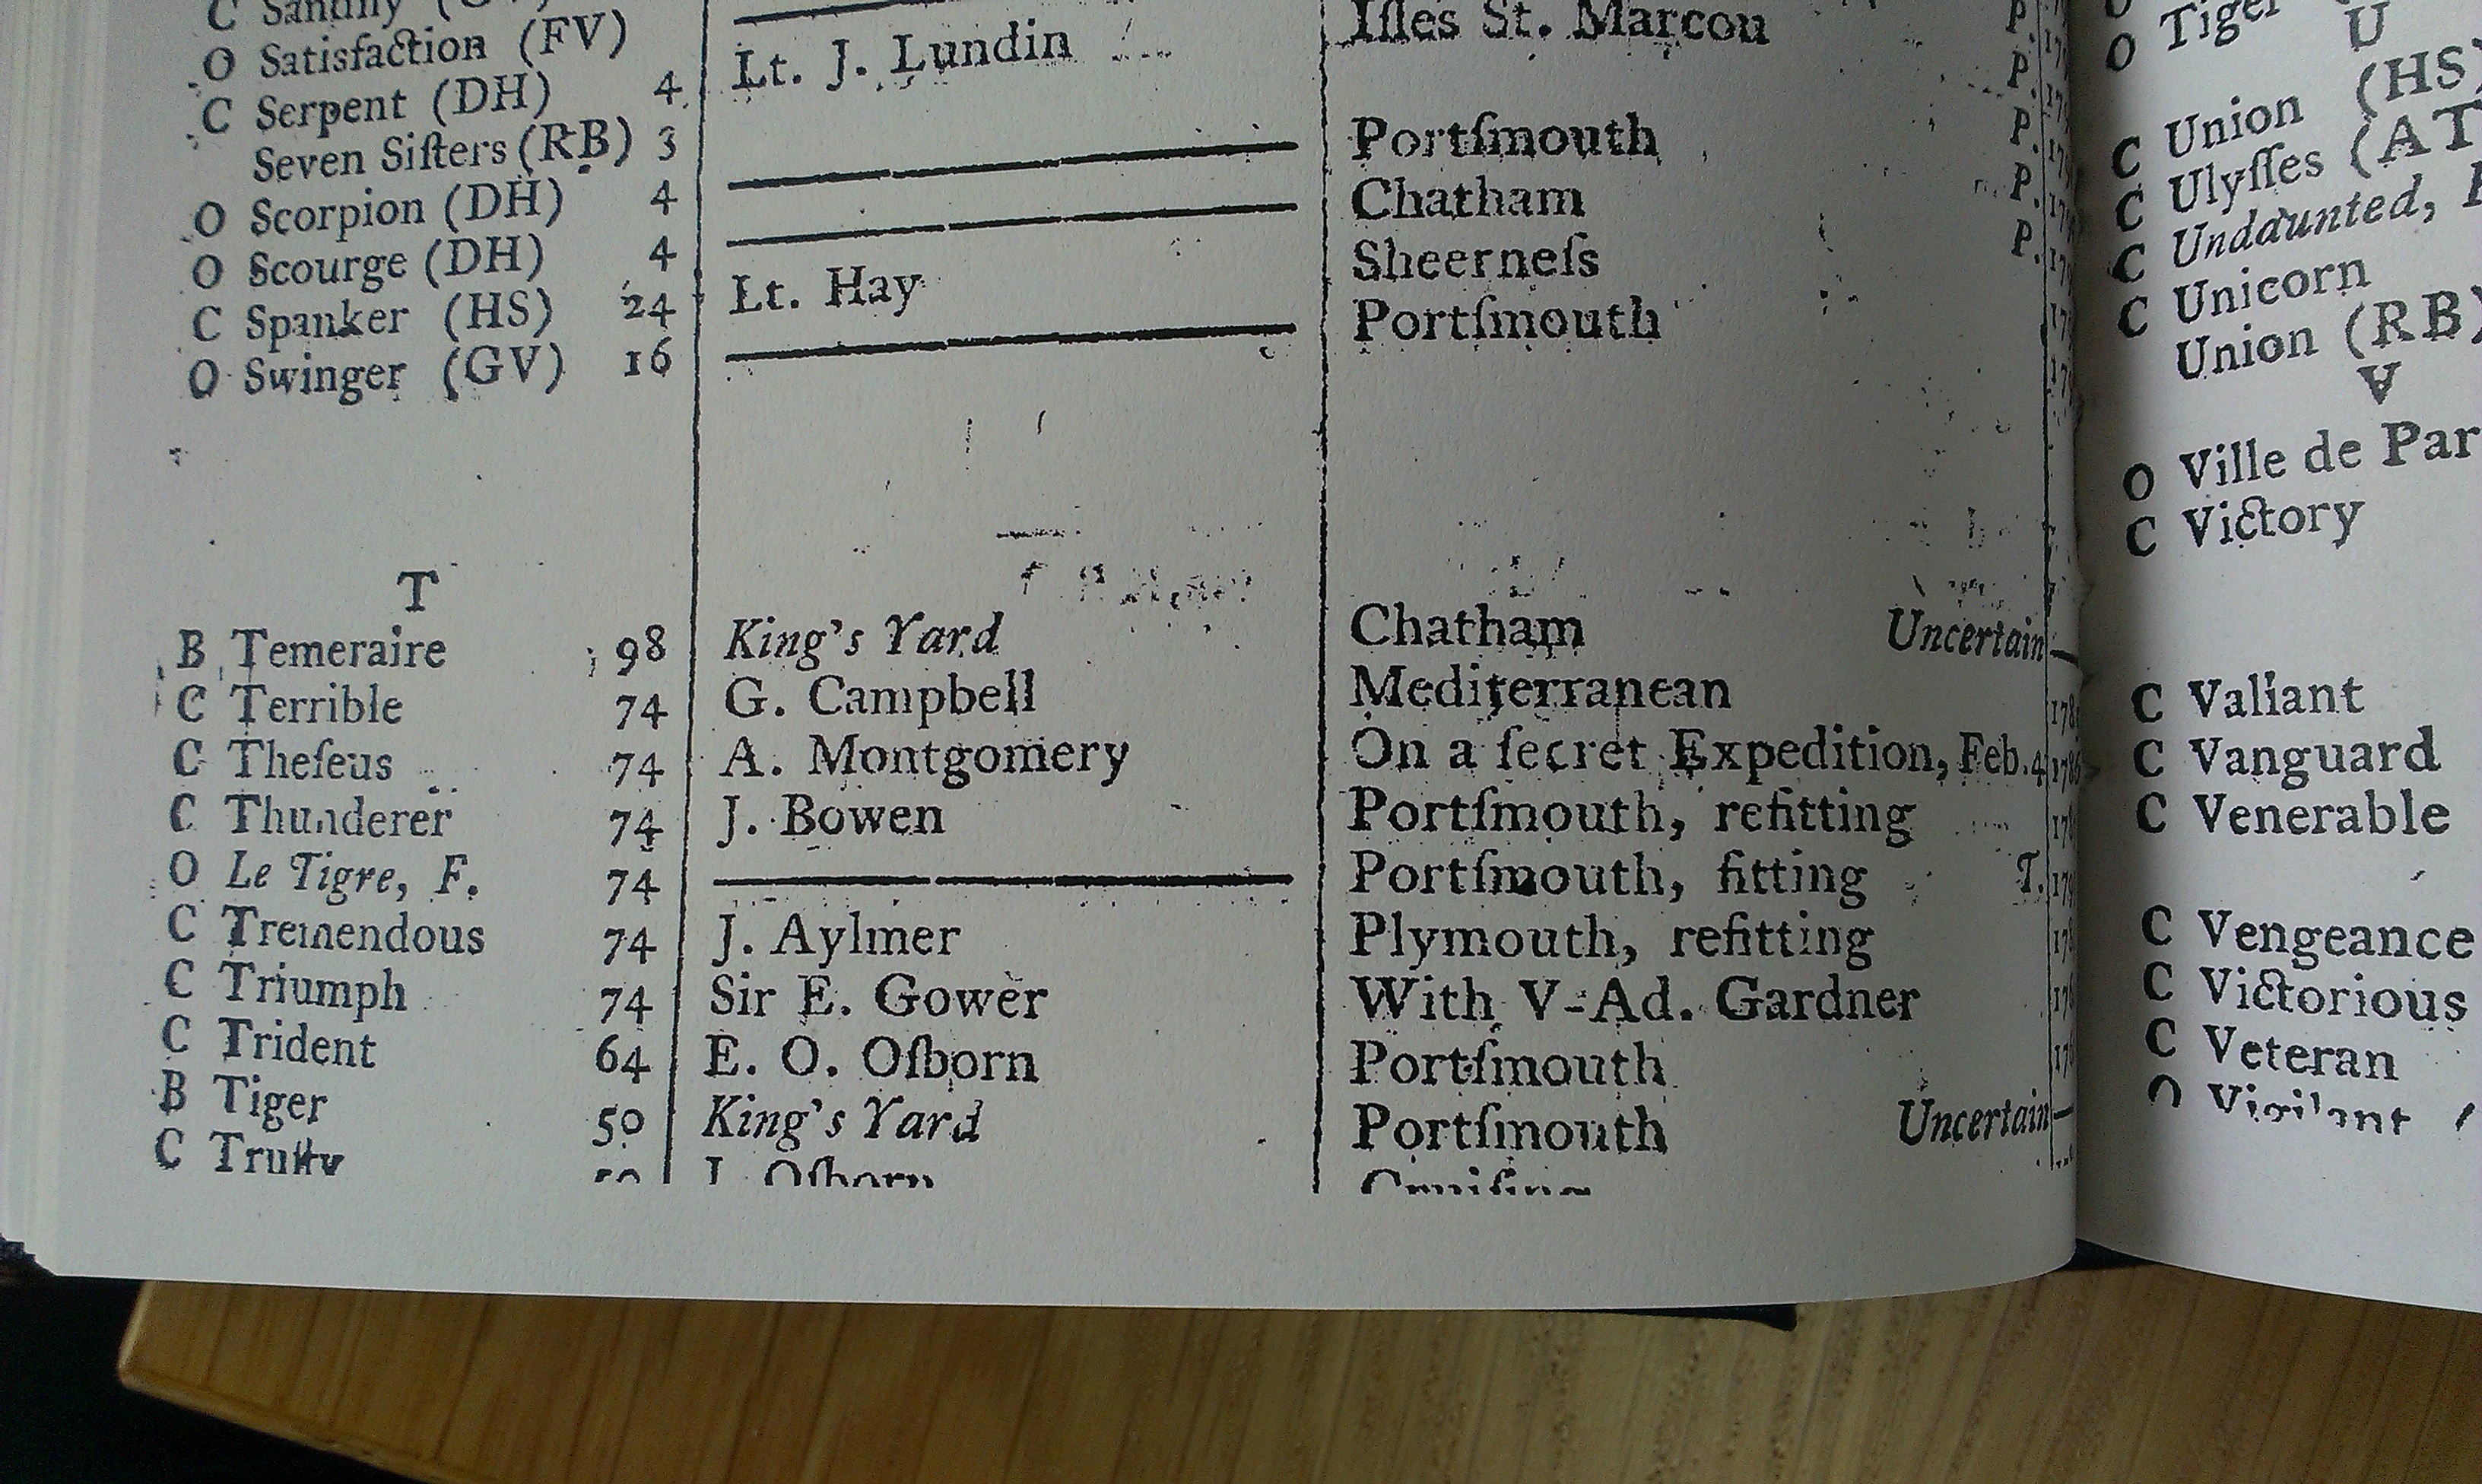 O Satisfaction (FV)
C Serpent (DH) 4 Lt. J. Lundin Iſles St. Marcou P.
Seven Siſters (RB) 3 P.
O Scorpion (DH) 4 ———— Portſmouth P.
O Scourge (DH) 4 ———— Chatham P.
C Spanker (HS) 24 Lt. Hay Sheerneſs P.
O Swinger (GV) 16 ———— Portſmouth
T
B Temeraire 98 King's Yard Chatham Uncertain —
C Terrible 74 G. Campbell Mediterranean
C Theſeus 74 A. Montgomery On a ſecret Expedition, Feb. 4
C Thunderer 74 J. Bowen Portſmouth, refitting
O Le Tigre, F. 74 ———— Portſmouth, fitting T.
C Tremendous 74 J. Aylmer Plymouth, refitting
C Triumph 74 Sir E. Gower With V-Ad. Gardner
C Trident 64 E. O. Oſborn Portſmouth
B Tiger 50 King's Yard Portſmouth Uncertain —
C Truſty 50 J. Oſborn Cruiſing
O Tiger
U
C Union (HS)
C Ulyſſes (AT
C Undaunted,
C Unicorn
Union (RB)
V
O Ville de Par
C Victory
C Valiant
C Vanguard
C Venerable
C Vengeance
C Victorious
C Veteran
O Vigilant